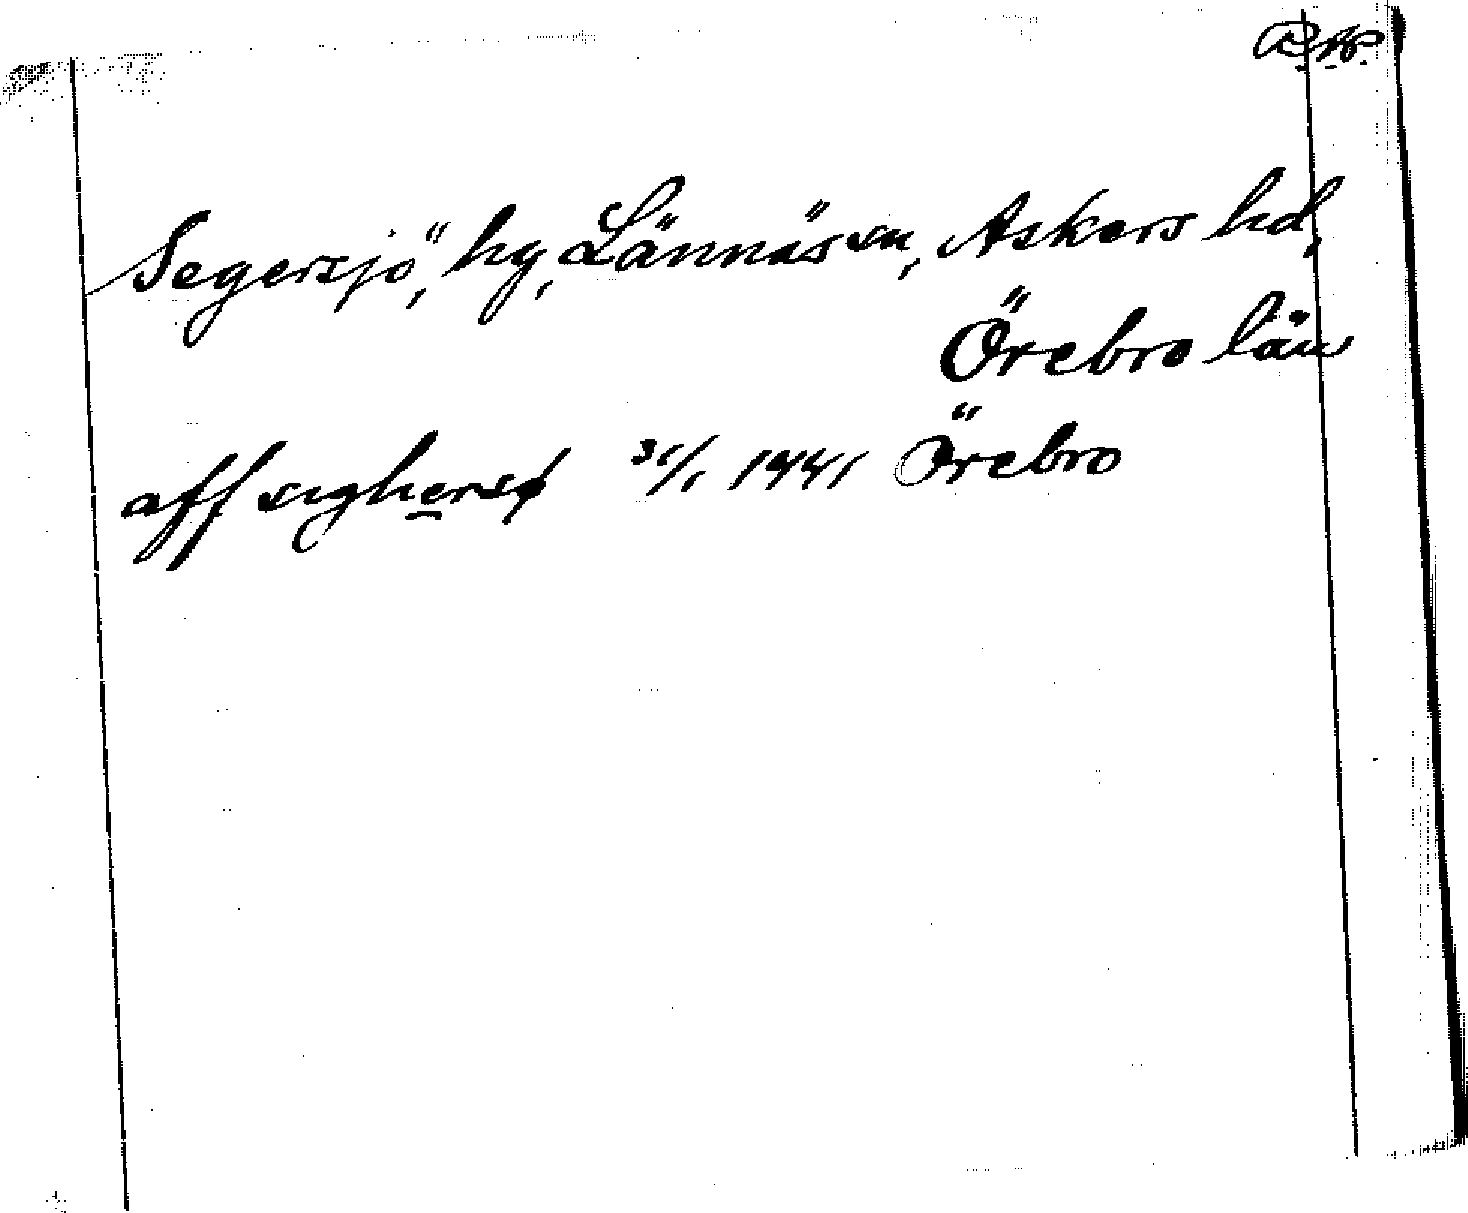 R.Ap.
Segersjö, hg, Lännäs sn, Askers hd,
Örebro län
aff sighersø 31/1 1441 Örebro